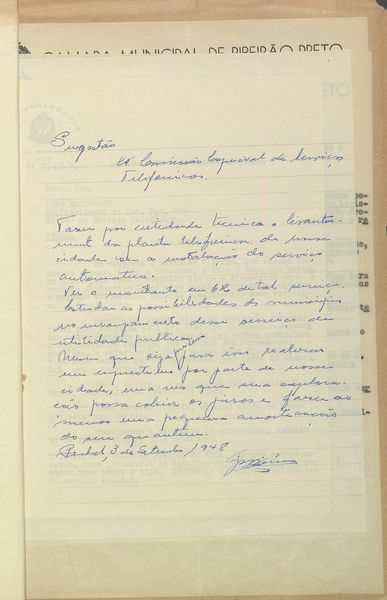 CAMARA MUNICIPAL DE RIBEIRÃO PRETO
Sugestão
Á Comissão Especial de Serviços
Telefonicos.
Fazer por entidade técnica o levanta-
mento da planta telefonica de nossa
cidade com a instalação do serviço
automatico.
Ver o montante em CR$ de tal serviço.
Estudar as possibilidades do municipio
no encampamento desse serviço de
utilidade publica,
Mesmo que seja preciso para isso realizar
um emprestimo por parte de nossa
cidade, uma vez que sua explora-
ção possa cobrir os juros e fazer ao
menos uma pequena amortização
do seu quantum.
3 de Setembro 1948